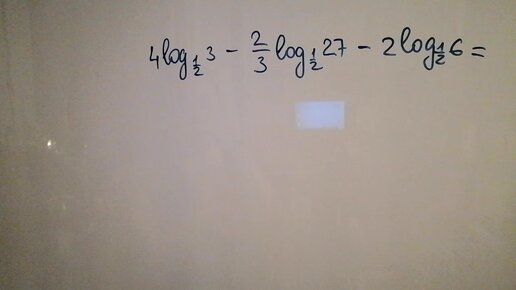 4log_{1/2} 3 - \frac{2}{3} log_{1/2} 27 - 2log_{1/2} 6 =